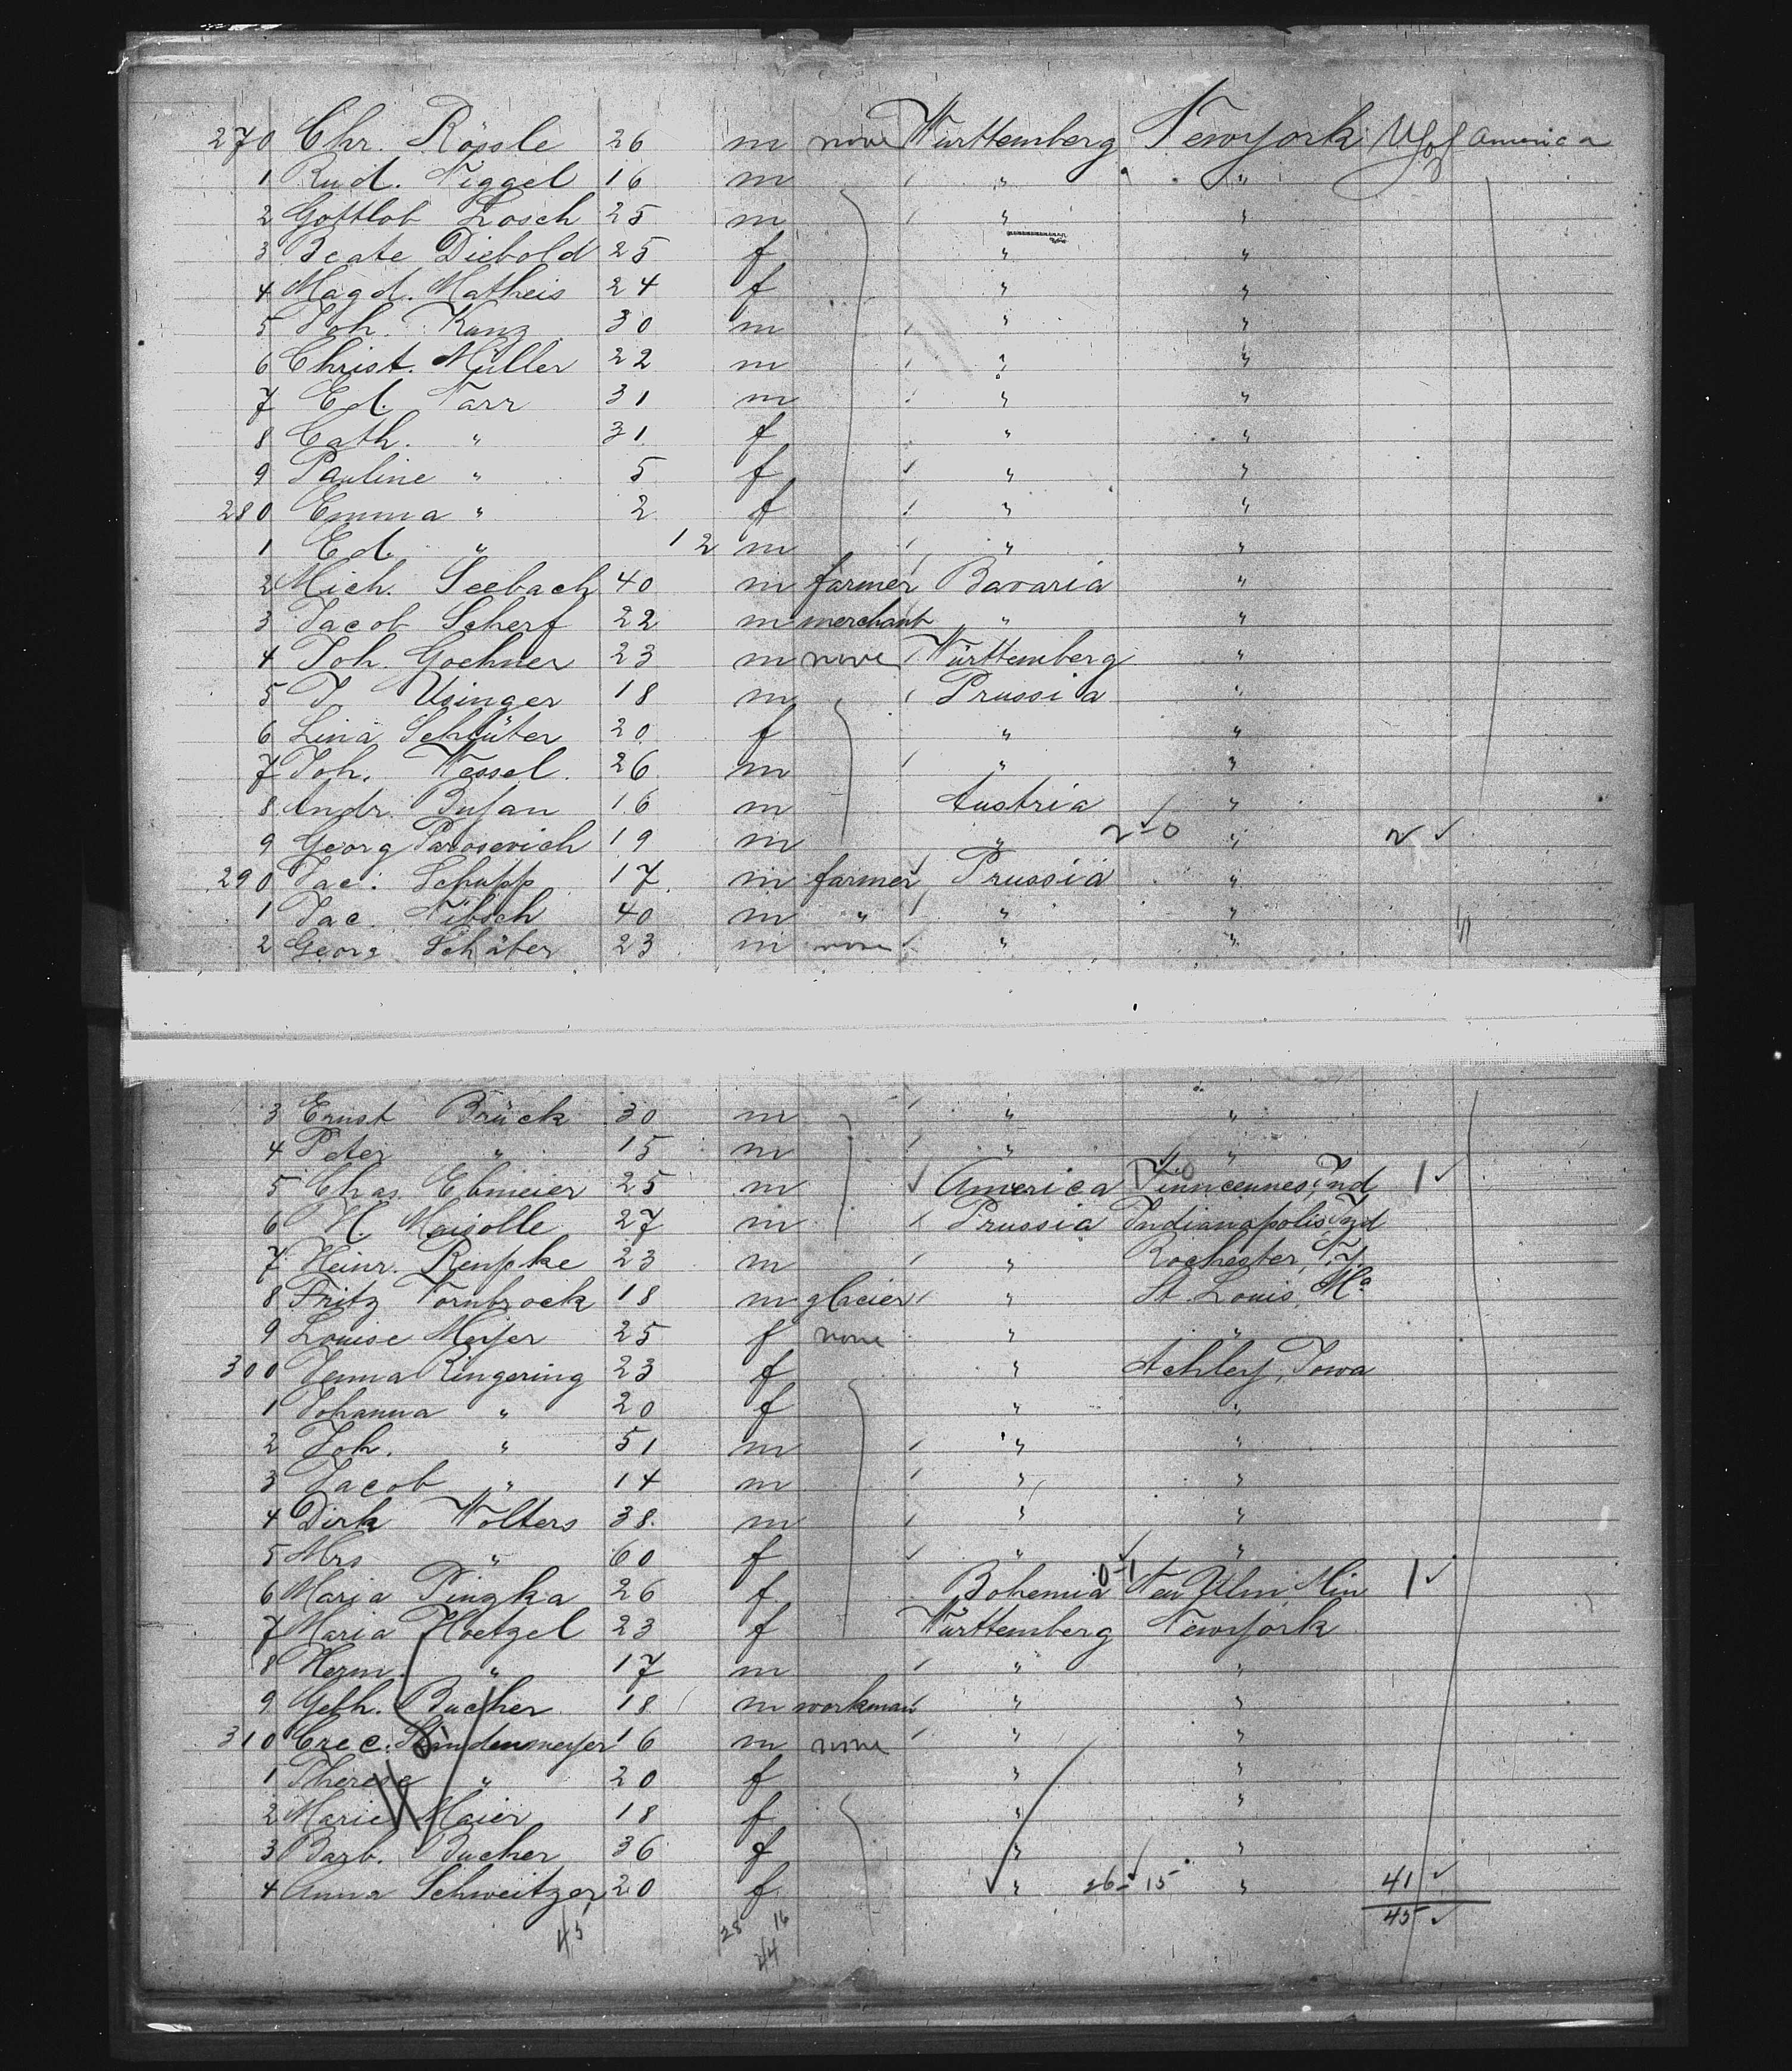 270 Chr. Rössle 26 m none Württemberg New york U S of America
1 Rud. Niggel 16 m " "
2 Gottlob Losch 25 m " "
3 Beate Diebold 25 f " "
4 Magd. Matheis 24 f " "
5 Joh. Kunz 30 m " "
6 Christ. Müller 22 m " "
7 Ed. Narr 31 m " "
8 Cath. " 31 f " "
9 Pauline " 5 f " "
280 Emma " 2 f " "
1 Ed. " 12 m " "
2 Mich. Seebach 40 m farmer Bavaria "
3 Jacob Scherf 22 m merchant " "
4 Joh. Goehner 23 m none Württemberg "
5 J Usinger 18 m Prussia "
6 Lina Schlüter 20 f " "
7 Joh. Wessel 26 m " "
8 Andr. 16 m Austria "
9 Georg Parosevich 19 m " 2-0 " 2 ✓
290 Jac. Schupp 17 m farmer Prussia "
1 Jac. 40 m " " "
2 Georg Schäfer 23 m none " "
3 Ernst Brück 30 m " "
4 Peter " 15 m " "
5 Chas Ebmeier 25 m ✓ America Vinncennes, Ind 1 ✓
6 H. Maisolle 27 m Prussia Indianapolis, Ind
7 Heinr. Renpke 23 m " Rochester, N.Y.
8 Fritz Tornbrock 18 m glacier " St Louis, Mo
9 Louise Meyer 25 f none " "
300 Jenna Ringering 23 f " Achley, Iowa
1 Johanna " 20 f " "
2 Joh. " 51 m " "
3 Jacob " 14 m " "
4 Dirk Wolters 38 m " "
5 Mrs " 60 f ✓ " ✓ "
6 Maria Pinzka 26 f Bohemia 0-1 New Ulm, Min 1 ✓
7 Maria Hoetzel 23 f Württemberg New york
8 Herm. " 17 m " "
9 Gebh. Bucher 18 m workman " "
310 Cresc. Standenmeyer 16 m none " "
1 Therese " 20 f " "
2 Marie Maier 18 f " "
3 Barb. Bucher 36 f " "
4 Anna Schweitzer 20 f ✓ " 26-15 " 41 ✓
45 28 16 45 ✓
44